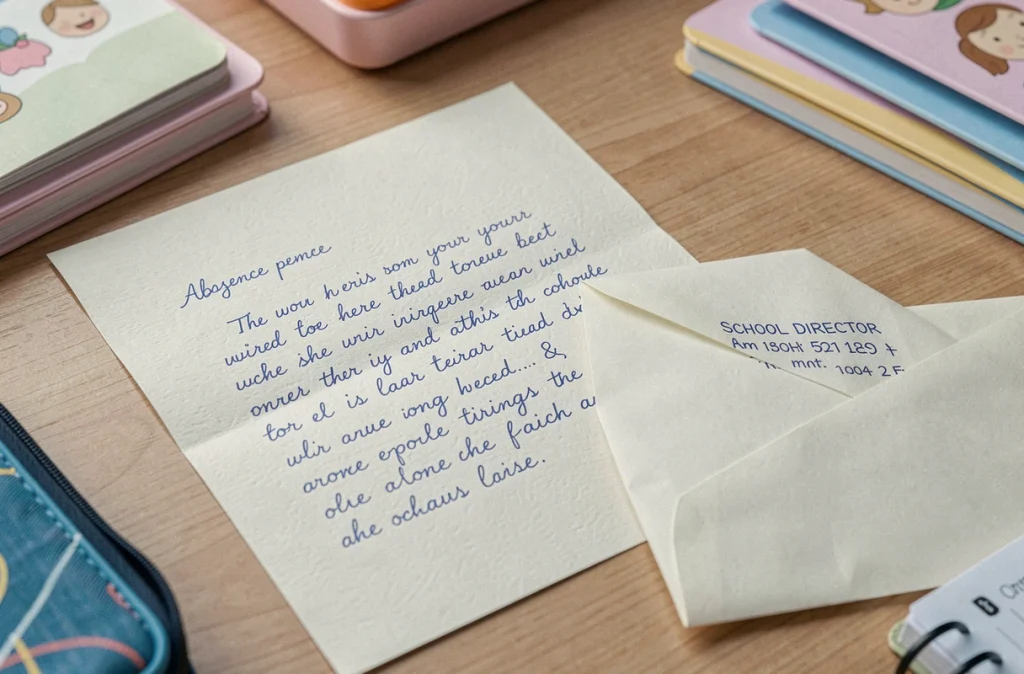 Abzgence pemce
The wou heris som your yourr
wired toe here thead toreue beet
wche she wnir inirgeere auean wirel
onrer ther iy and athis tth cohoule
tor el is laar teirar tiead
wlir anue iong heced.... &,
arove eporle tirings the
olre alone che faich a
ahe ochaus laise.
SCHOOL DIRECTOR
Am 1SOH 521 129 +
mnt. 1004 2 F